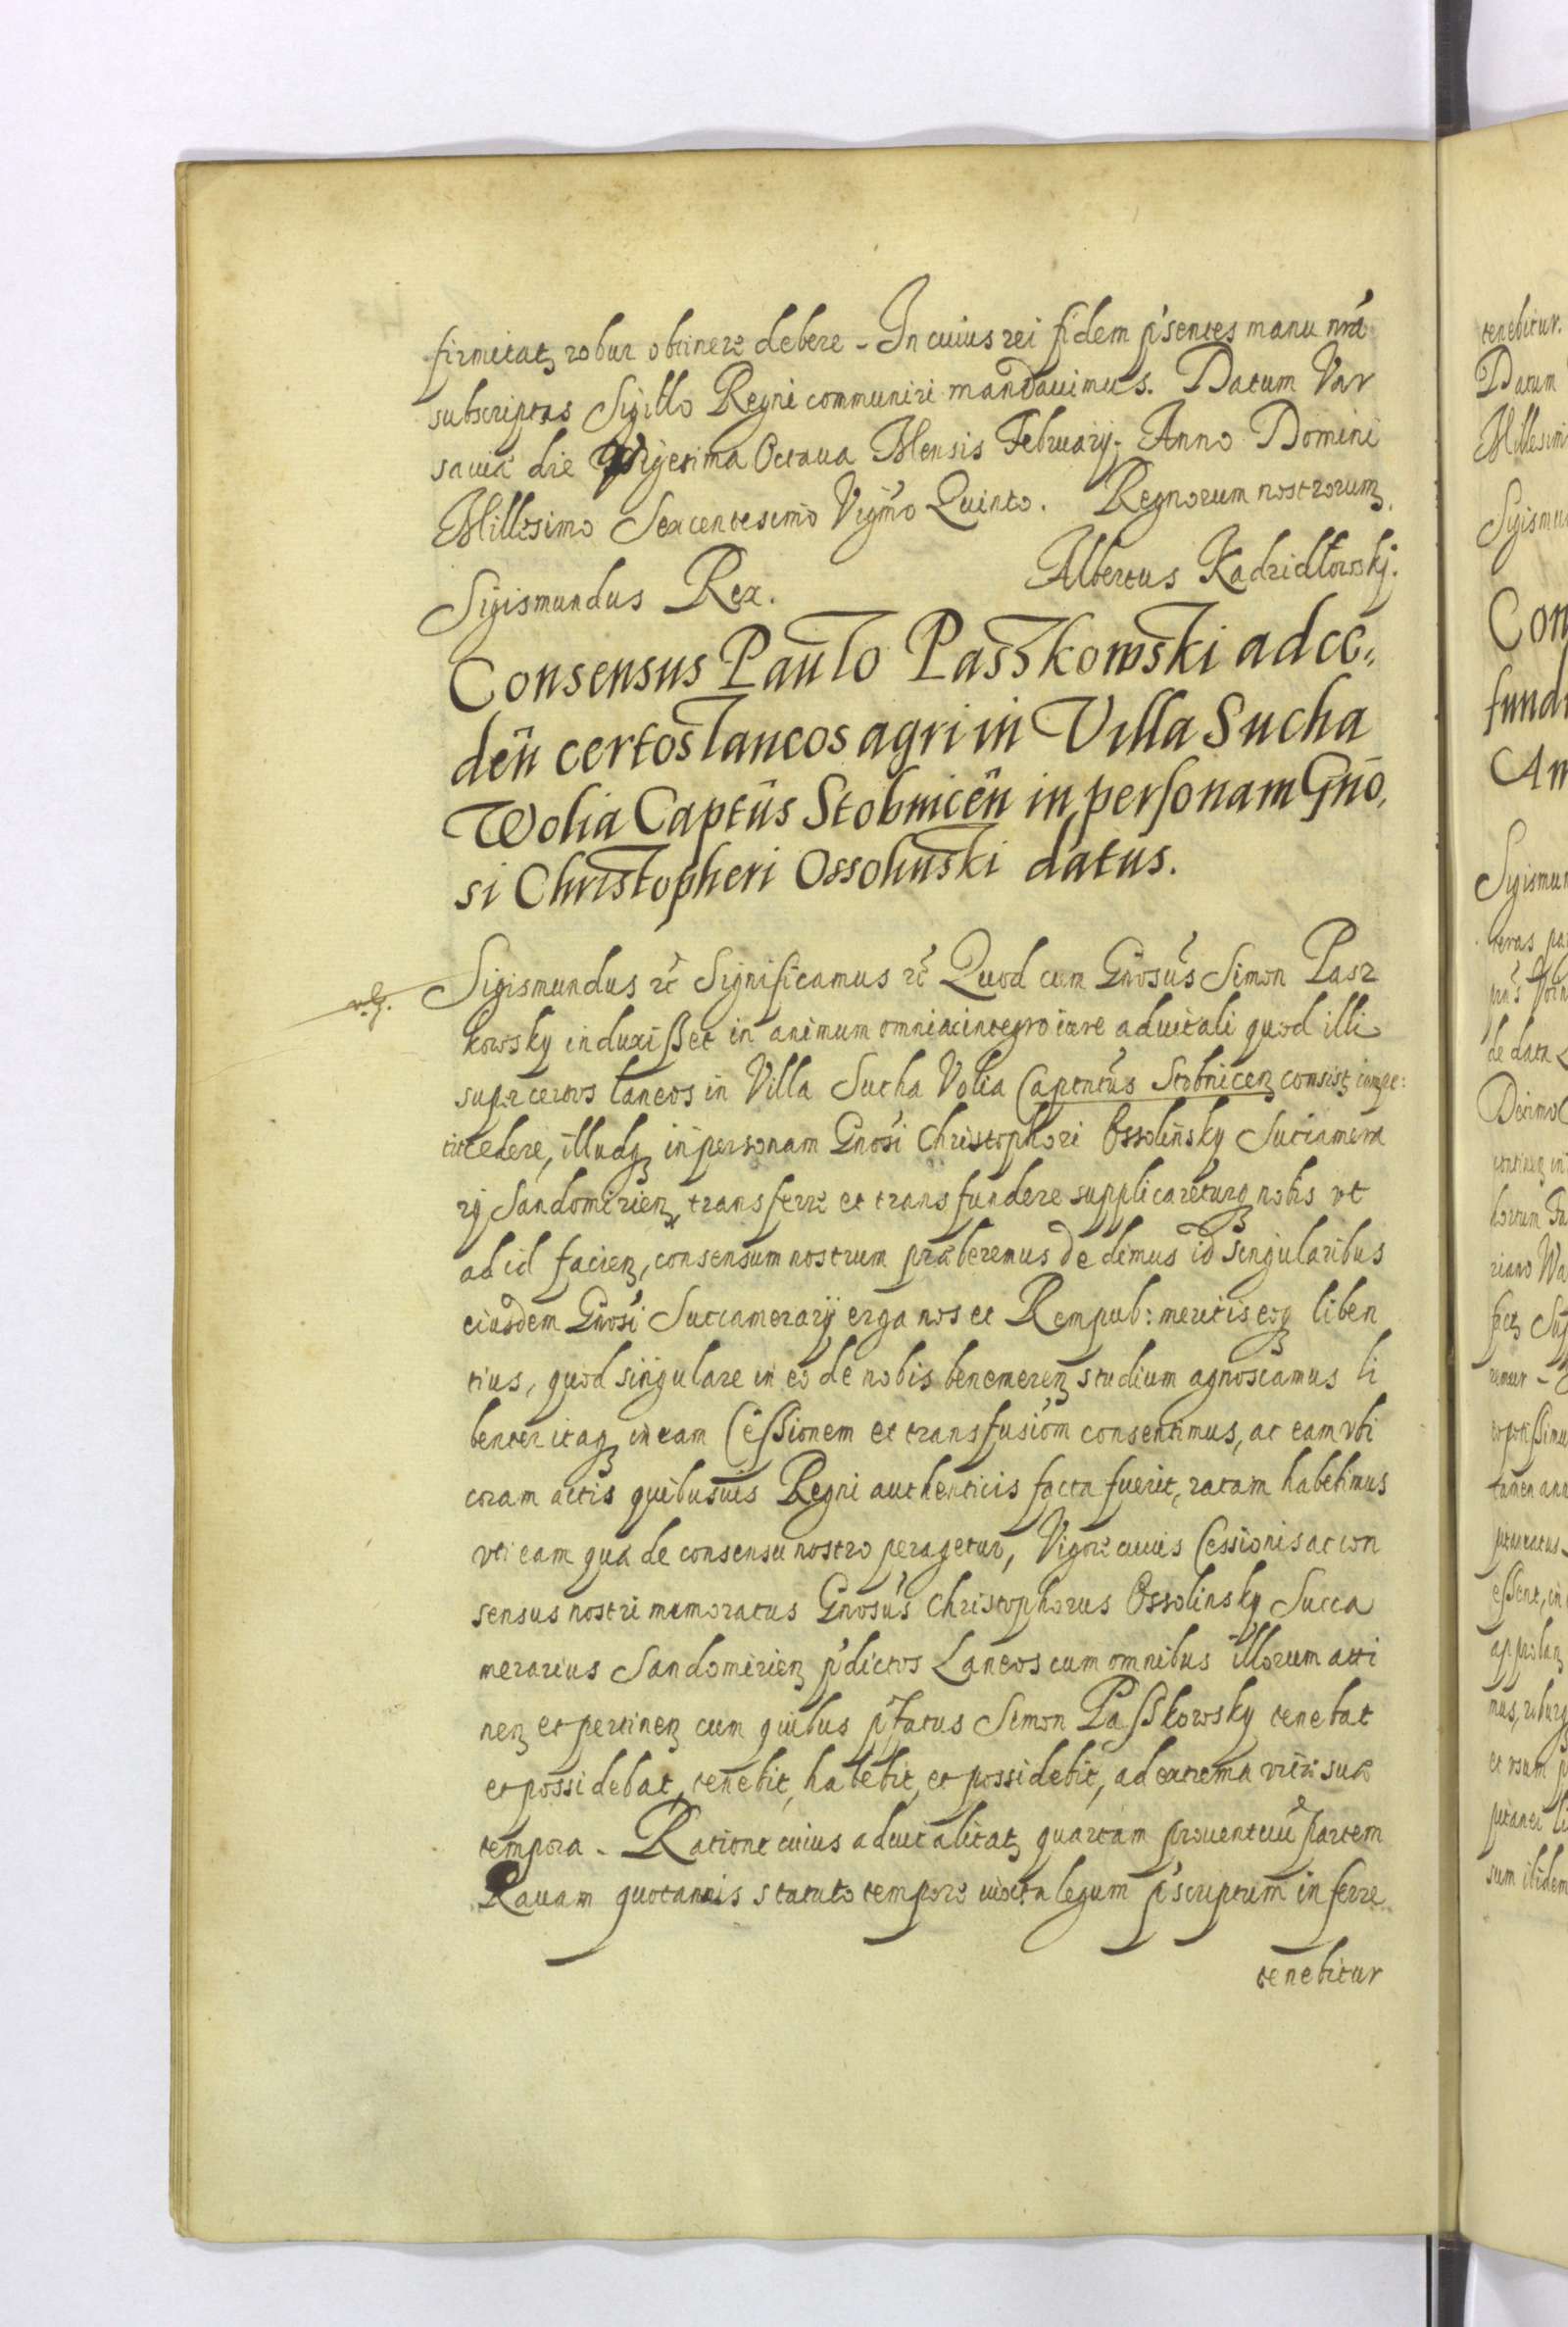 firmitatꝫ robur obtinere debere – In cuius rei fidem p'sentes manu nra
subscriptas Sigillo Regni communiri mandauimus. Datum Var
sauiæ die Vigesima Octaua Mensis February. Anno Domini
Millesimo Sexcentesimo Vigmo Quinto. Regnorum nostrorumꝫ.
Sigismundus Rex. Albertus Kadzidłowskj.
Consensus Paulo Paszkowski ad ce„
den certos laneos agri in Villa Sucha
Wolia Captus Stobnicen in personam Gno,
si Christopheri Ossolinski datus.
Sigismundus rc Significamus rc Quod cum Gnosus Simon Pasz
kowsky induxißet in animum omni ac integro iure aduitali quod illi
super certos laneos in Villa Sucha Volia Captntus Stobnicenꝫ consistꝫ compe:
tit cedere, illudqꝫ in personam Gnosi Christophori Ossolinsky Succamera
rij Sandomirienꝫ transferre et transfundere supplicareturqꝫ nobis vt
ad id facienꝫ, consensum nostrum præberemus dedimus id singularibus
eiusdem Gnosi Succamerarij erga nos et Rempub: meritis eoqꝫ liben
tius, quod singulare in eo de nobis benemerenꝫ studium agnoscamus li
benter itaqꝫ in eam Ceßionem et transfusiom consentimus, ac eam vbi
coram actis quibusuis Regni authenticis facta fuerit, ratam habebimus
vti eam quæ de consensu nostro peragetur, Vigore cuius Cessionis ac con
sensus nostri memoratus Gnosus Christophorus Ossolinsky Succa
merarius Sandomirienꝫ p'dictos Laneos cum omnibus illorum atti
nenꝫ et pertinenꝫ cum quibus p'fatus Simon Paßkowsky tenebat
et possidebat, tenebit, habebit, et possidebit, ad extrema vitæ suæ
tempora – Ratione cuius aduitalitatꝫ quartam prouentuu partem
Rauam quotannis statuto tempore iuxta legum p'scriptum inferre
tenebitur
tenebitur.
Datum
Sigismun
Con
fund
Am
Sigismun
de data